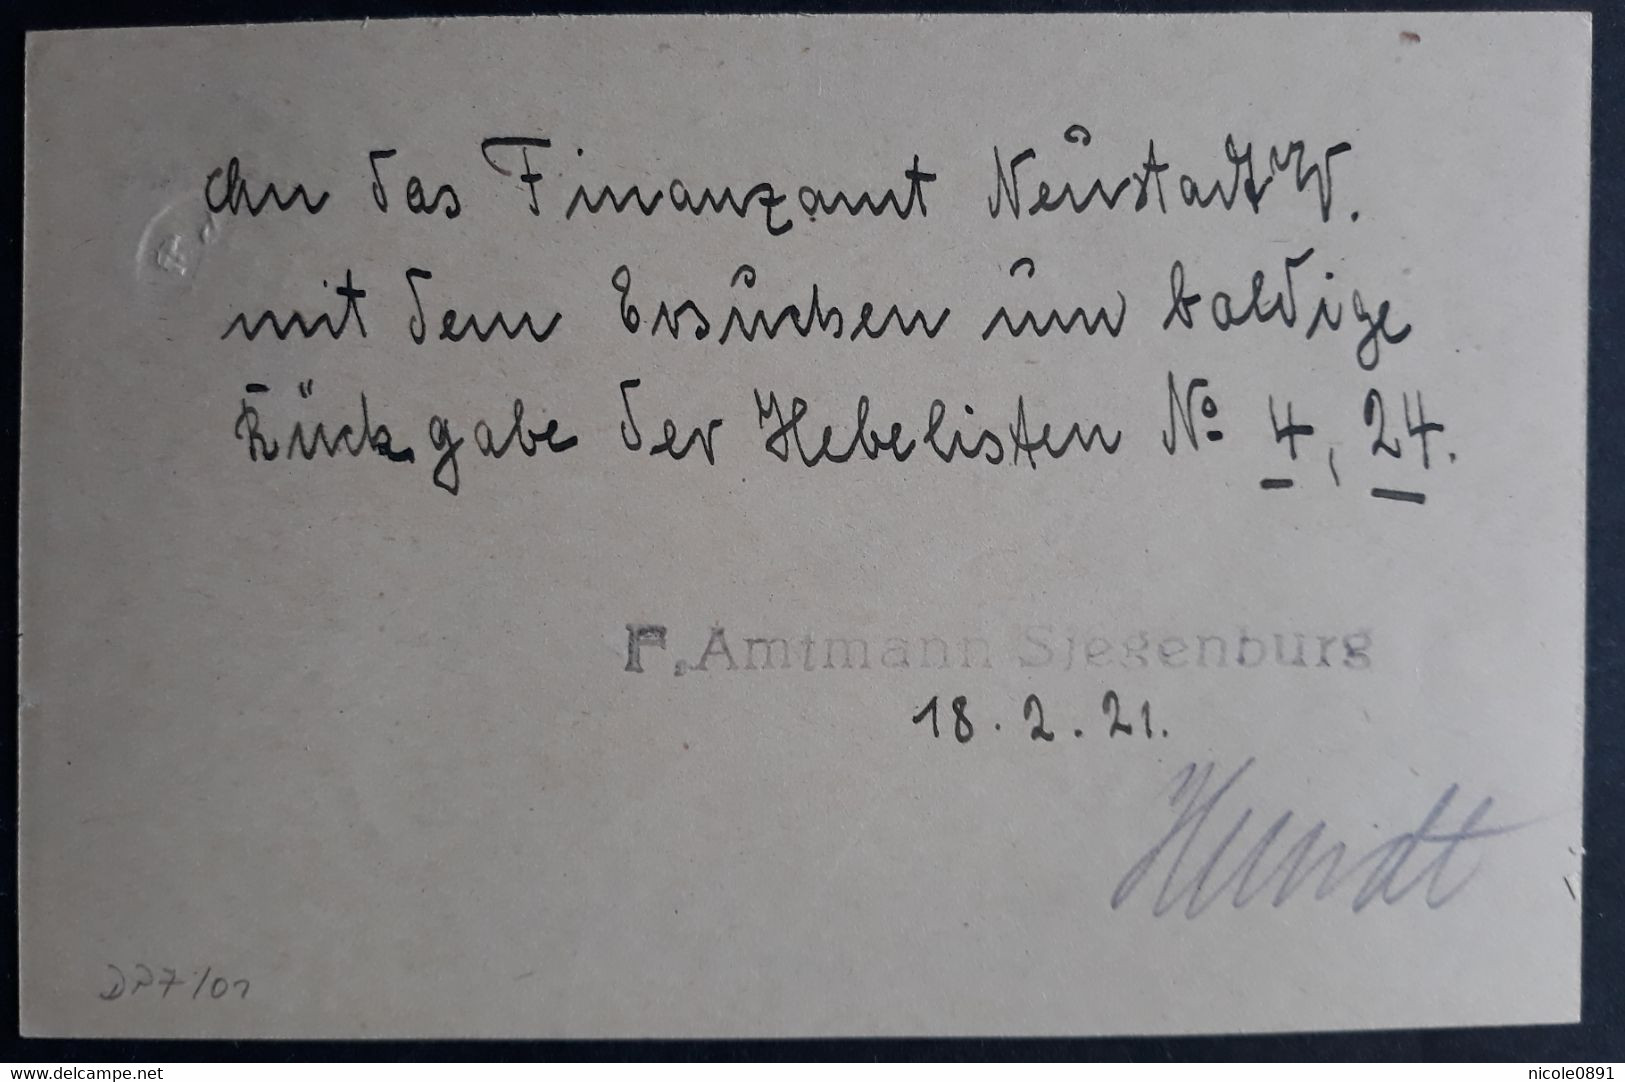 An das Finanzamt Neustadt W.
mit dem Ersuchen um baldige
Rückgabe der Hebelisten No 4, 24.
F. Amtmann Siegenburg
18. 2. 21.
Hundt
DP7/01
www.delcampe.net
nicole0891